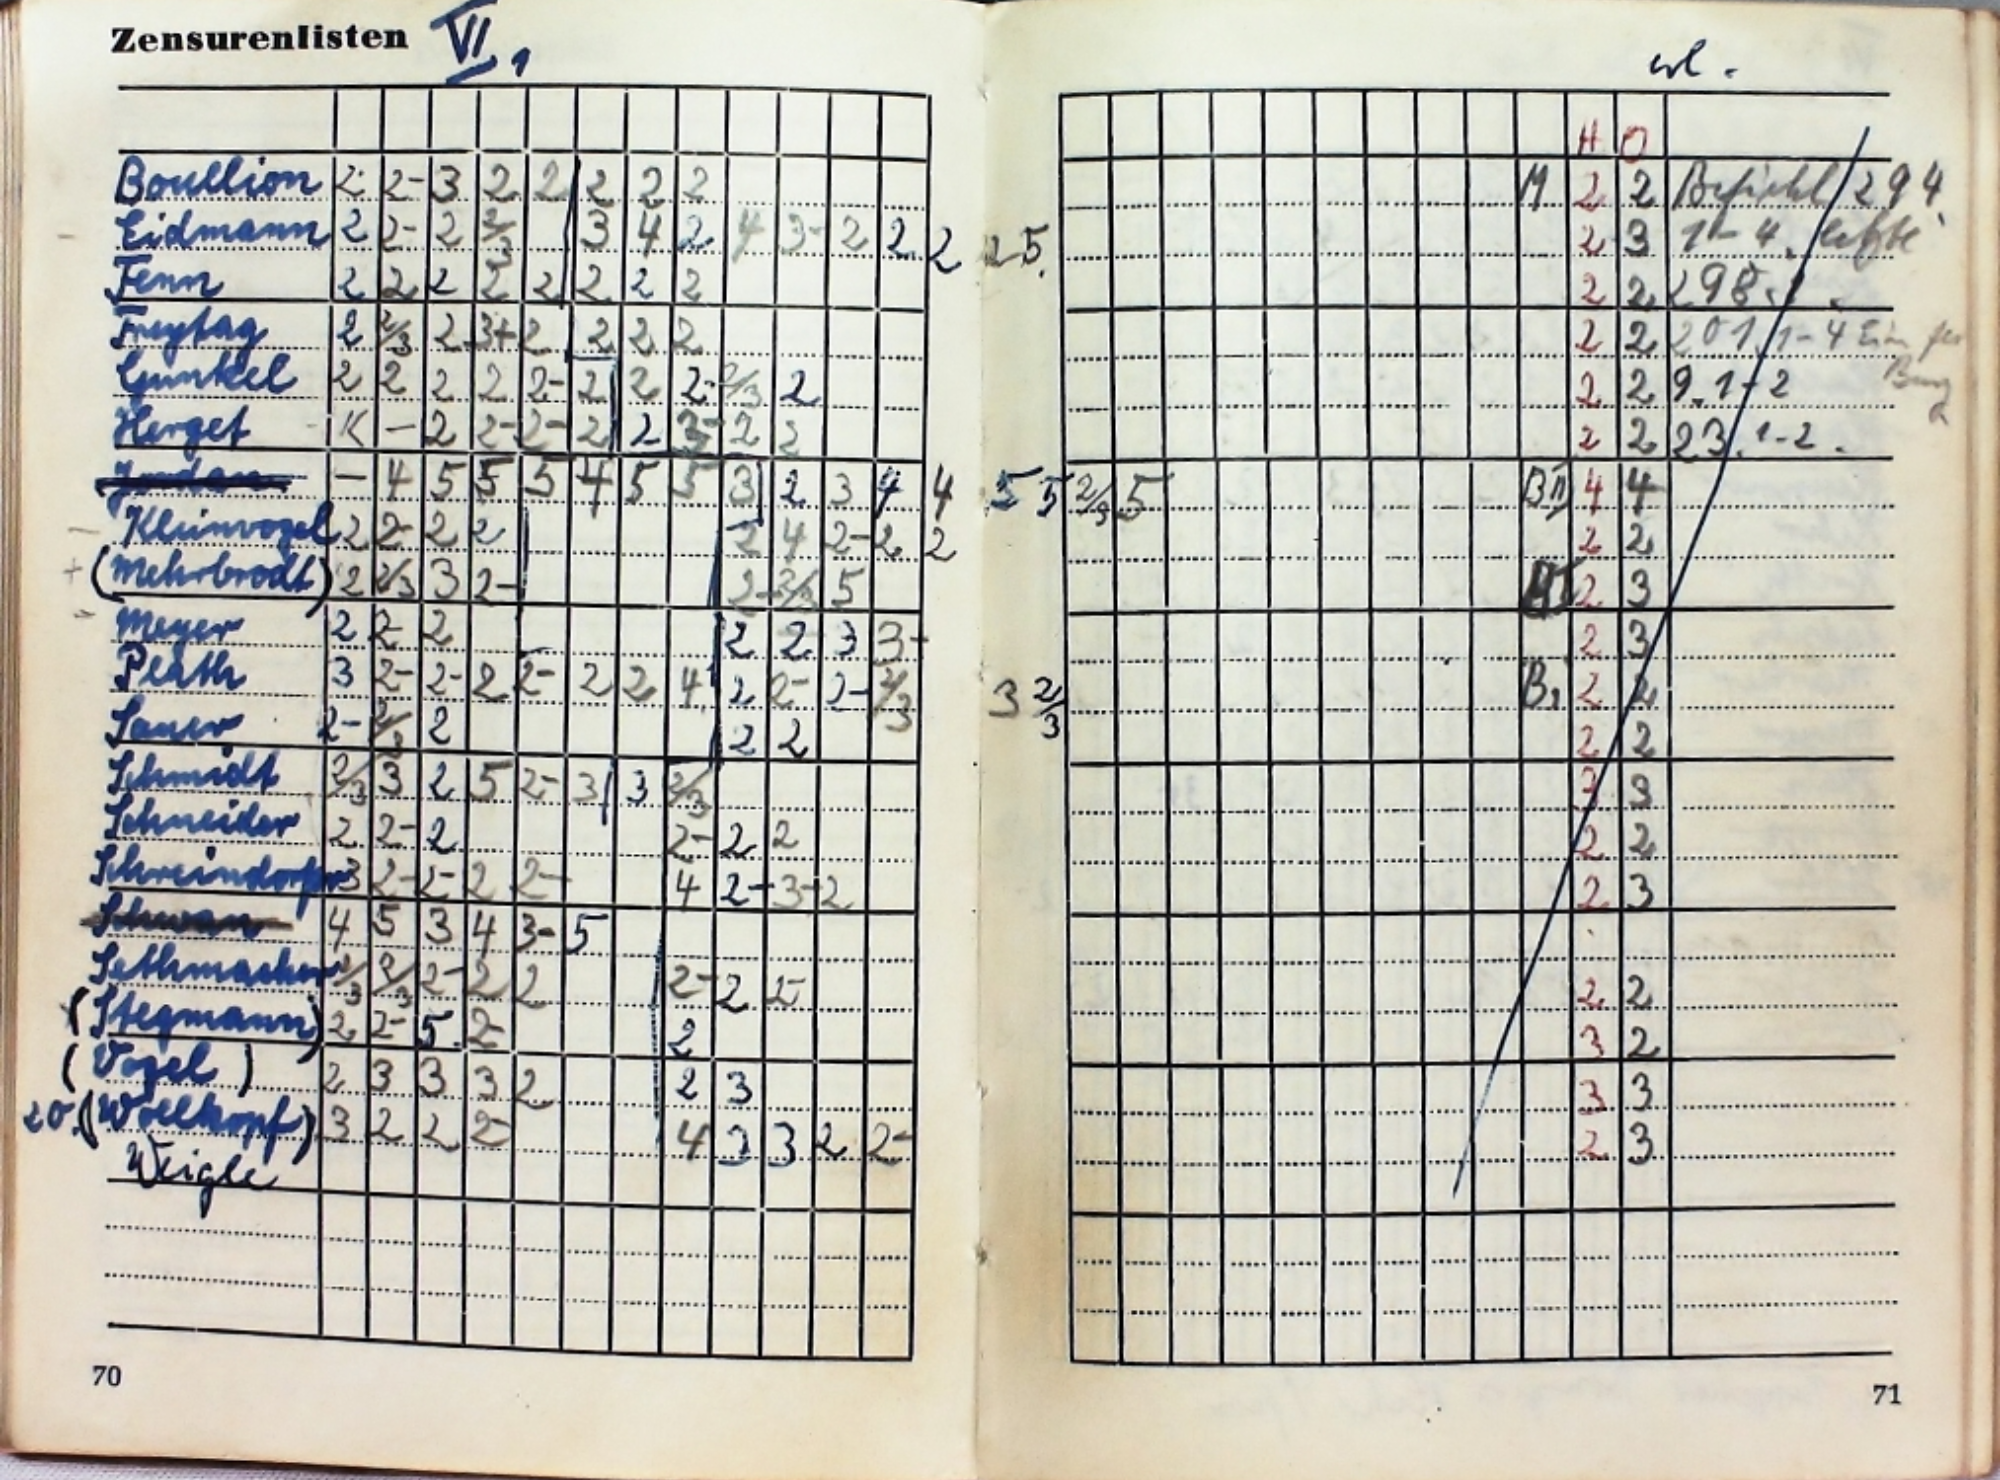 Zensurenlisten VI, 1
erl.
H O
Boullion 2 2- 3 2 2 2 2 2 M 2 2 Befiehl 294.
- Eidmann 2 2- 2 2/3 3 4 2 4 3- 2 2 2 25. 2 3 1-4. letzte
Fenn 2 2 2 2 2 2 2 2 2 2 298.
Freytag 2 2/3 2 3+ 2 2 2 2 2 2 201. 1-4
Gunkel 2 2 2 2 2- 2 2 2- 2/3 2 2 2 9. 1-2
Herget K - 2 2- 2- 2 2 2 2 2 2 23. 1-2.
Jordan - 4 5 5 5 4 5 5 3 2 3 4 4 5 5 2/3 5 BII 4 4
- Kleinvogel 2 2- 2 2 2 4 2- 2 2 2 2
+ (Mehrbrodt) 2 2/3 3 2- 2- 2/3 5 2 3
- Meyer 2 2 2 2 2 3 3- 2 3
Plath 3 2- 2- 2 2- 2 2 4 2 2- 2- 2/3 3 2/3 B, 2 2
Sauer 2- 2/3 2 2 2 2 2
Schmidt 2/3 3 2 5 2- 3 3 2/3 3 3
Schneider 2 2- 2 2- 2 2 2 2
Schreindorfer 3 2- 2- 2 2- 4 2- 3- 2 2 3
Schwan 4 5 3 4 3- 5
Sethmacher 2/3 2/3 2- 2 2 2- 2 2- 2 2
(Stegmann) 2 2- 5. 2- 2 3 2
(Vogel) 2 3 3 3 2 2 3 3 3
20. (Wollkopf) 3 2 2 2- 4 3 3 2 2- 2 3
Weigle
70
71